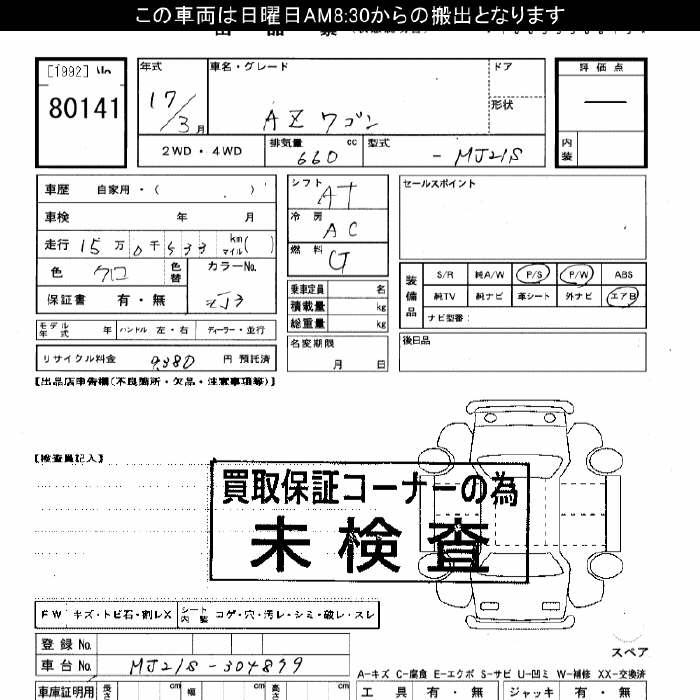 この車両は日曜日AM8:30からの搬出となります
[1992]
80141
年式 車名・グレード ドア 評価点
17/3月 AZワゴン 形状 —
2WD・4WD 排気量 660 cc 型式 -MJ21S 内装
車歴 自家用・( )
車検 年 月
走行 15万0千533 km マイル( )
色 クロ 色替 カラーNo. ZJ3
保証書 有・無
シフト AT
冷房 AC
燃料 G
乗車定員 名
積載量 kg
総重量 kg
セールスポイント
装備品 S/R 純A/W P/S P/W ABS
純TV 純ナビ 革シート 外ナビ エアB
ナビ型番:
モデル年式 年 ハンドル 左・右 ディーラー・並行
名変期限 月 日
後日品
リサイクル料金 9,380 円 預託済
【出品店申告欄(不良箇所・欠品・注意事項等)】
【検査員記入】
買取保証コーナーの為
未検査
FW キズ・トビ石・割レX シート内装 コゲ・穴・汚レ・シミ・破レ・スレ
登録No.
車台No. MJ21S-304899
スペア
A-キズ C-腐食 E-エクボ S-サビ U-凹ミ W-補修 XX-交換済
車庫証明用 長さ cm 幅 cm 高さ cm
工具 有・無 ジャッキ 有・無